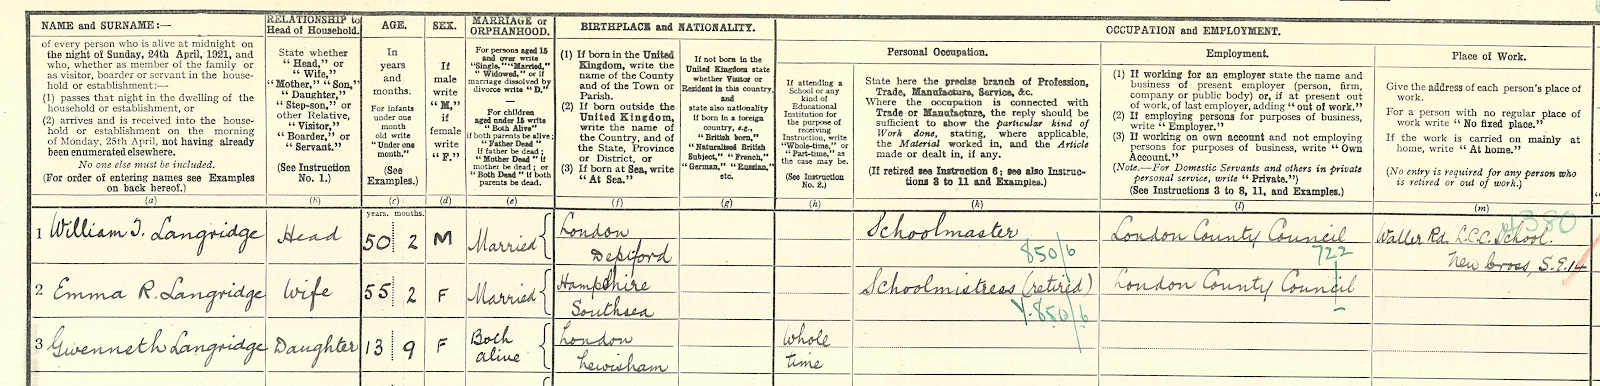 NAME AND SURNAME:—
of every person who is alive at midnight on
the night of Sunday, 24th April, 1921, and
who, whether as member of the family or
as visitor, boarder or servant in the house-
hold or establishment:—
(1) passes that night in the dwelling of the
household or establishment, or
(2) arrives and is received into the house-
hold or establishment on the morning
of Monday, 25th April, not having already
been enumerated elsewhere.
No one else must be included.
(For order of entering names see Examples
on back hereof.)
(a)
RELATIONSHIP to
Head of Household.
State whether
"Head," or
"Wife,"
"Mother," "Son,"
"Daughter,"
"Step-son," or
other Relative,
"Visitor,"
"Boarder," or
"Servant."
(See Instruction
No. 1.)
(b)
AGE.
In
years
and
months.
For infants
under one
month
old write
"Under one
month."
(See
Examples.)
(c)
SEX.
If
male
write
"M,"
if
female
write
"F."
(d)
MARRIAGE or
ORPHANHOOD.
For persons aged 15
and over write
"Single," "Married,"
"Widowed," or if
marriage dissolved by
divorce write "D."
—
For children
aged under 15 write
"Both Alive"
if both parents be alive;
"Father Dead" if
father be dead;
"Mother Dead" if
mother be dead; or
"Both Dead" if both
parents be dead.
(e)
BIRTHPLACE and NATIONALITY.
(1) If born in the United
Kingdom, write the
name of the County
and of the Town or
Parish.
(2) If born outside the
United Kingdom,
write the name of
the Country, and of
the State, Province
or District, or
(3) If born at Sea, write
"At Sea."
(f)
If not born in the
United Kingdom state
whether Visitor or
Resident in this country,
and
state also nationality
if born in a foreign
country, e.g.,
"British born,"
"Naturalised British
Subject," "French,"
"German," "Russian,"
etc.
(g)
OCCUPATION AND EMPLOYMENT.
If attending a
School or any
kind of
Educational
Institution for the
purpose of
receiving
Instruction, write
"Whole-time," or
"Part-time," as
the case may be.
(See Instruction
No. 2.)
(h)
Personal Occupation.
State here the precise branch of Profession,
Trade, Manufacture, Service, &c.
Where the occupation is connected with
Trade or Manufacture, the reply should be
sufficient to show the particular kind of
Work done, stating, where applicable,
the Material worked in, and the Article
made or dealt in, if any.
(If retired see Instruction 6; see also Instruc-
tions 3 to 11 and Examples.)
(k)
Employment.
(1) If working for an employer state the name and
business of present employer (person, firm,
company or public body) or, if at present out
of work, of last employer, adding "out of work."
(2) If employing persons for purposes of business,
write "Employer."
(3) If working on own account and not employing
persons for purposes of business, write "Own
Account."
(Note.—For Domestic Servants and others in private
personal service, write "Private.")
(See Instructions 3 to 8, 11, and Examples.)
(l)
Place of Work.
Give the address of each person's place of
work.
For a person with no regular place of
work write "No fixed place."
If the work is carried on mainly at
home, write "At home."
(No entry is required for any person who
is retired or out of work.)
(m)
years. months.
4380
1 William T. Langridge Head 50 2 M Married London Schoolmaster London County Council Waller Rd. L.C.C. School.
Deptford 850/6 722 New Cross, S.E.14
2 Emma R. Langridge Wife 55 2 F Married Hampshire Schoolmistress (retired) London County Council
Southsea Y.850/6
3 Gwenneth Langridge Daughter 13 9 F Both London Whole
alive Lewisham time